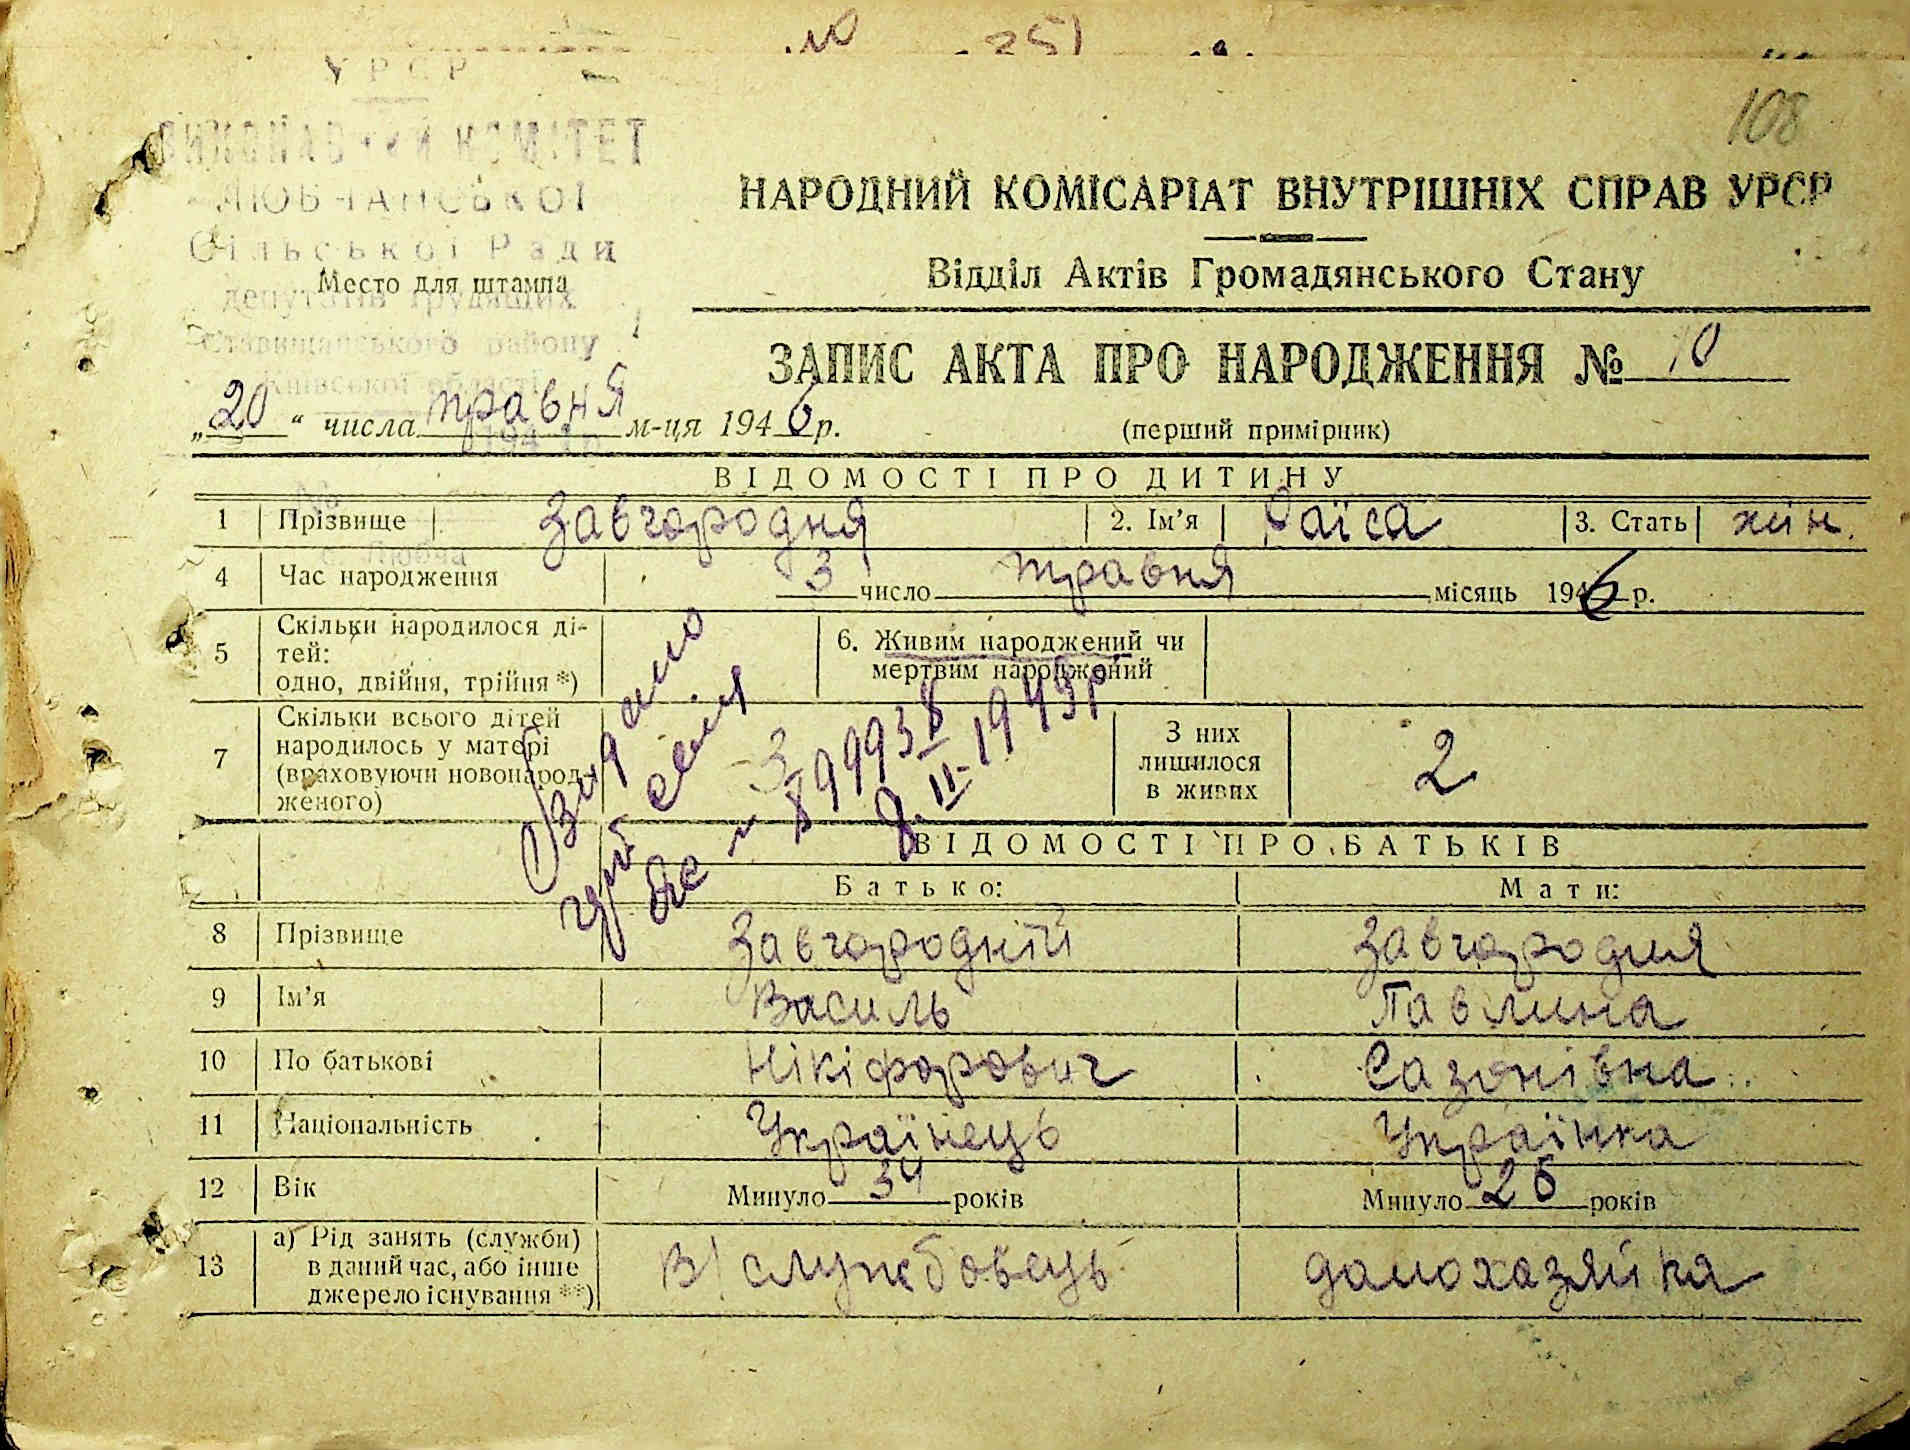 № 251
108
УРСР
ВИКОНАВЧИЙ КОМІТЕТ
ЛЮБЧАНСЬКОЇ
Сільської Ради
депутатів трудящих
Ставищанського району
Київської області
Место для штампа
НАРОДНИЙ КОМІСАРІАТ ВНУТРІШНІХ СПРАВ УРСР
Відділ Актів Громадянського Стану
ЗАПИС АКТА ПРО НАРОДЖЕННЯ № 10
„20“ числа травня м-ця 1946 р.
(перший примірник)
ВІДОМОСТІ ПРО ДИТИНУ
1 Прізвище Завгородня 2. Ім’я Раїса 3. Стать жін.
с. Любча
4 Час народження 3 число травня місяць 1946 р.
5 Скільки народилося ді-
тей:
одно, двійня, трійня *)
6. Живим народжений чи
мертвим народжений
7 Скільки всього дітей
народилось у матері
(враховуючи новонарод-
женого)
3
З них
лишилося
в живих
2
8.II-1949р
ВІДОМОСТІ ПРО БАТЬКІВ
Батько: Мати:
8 Прізвище Завгородній Завгородня
9 Ім’я Василь Павлина
10 По батькові Нікіфорович Сазонівна
11 Національність Українець Українка
12 Вік Минуло 34 років Минуло 26 років
13 а) Рід занять (служби)
в даний час, або інше
джерело існування **)
В/службовець домохазяйка